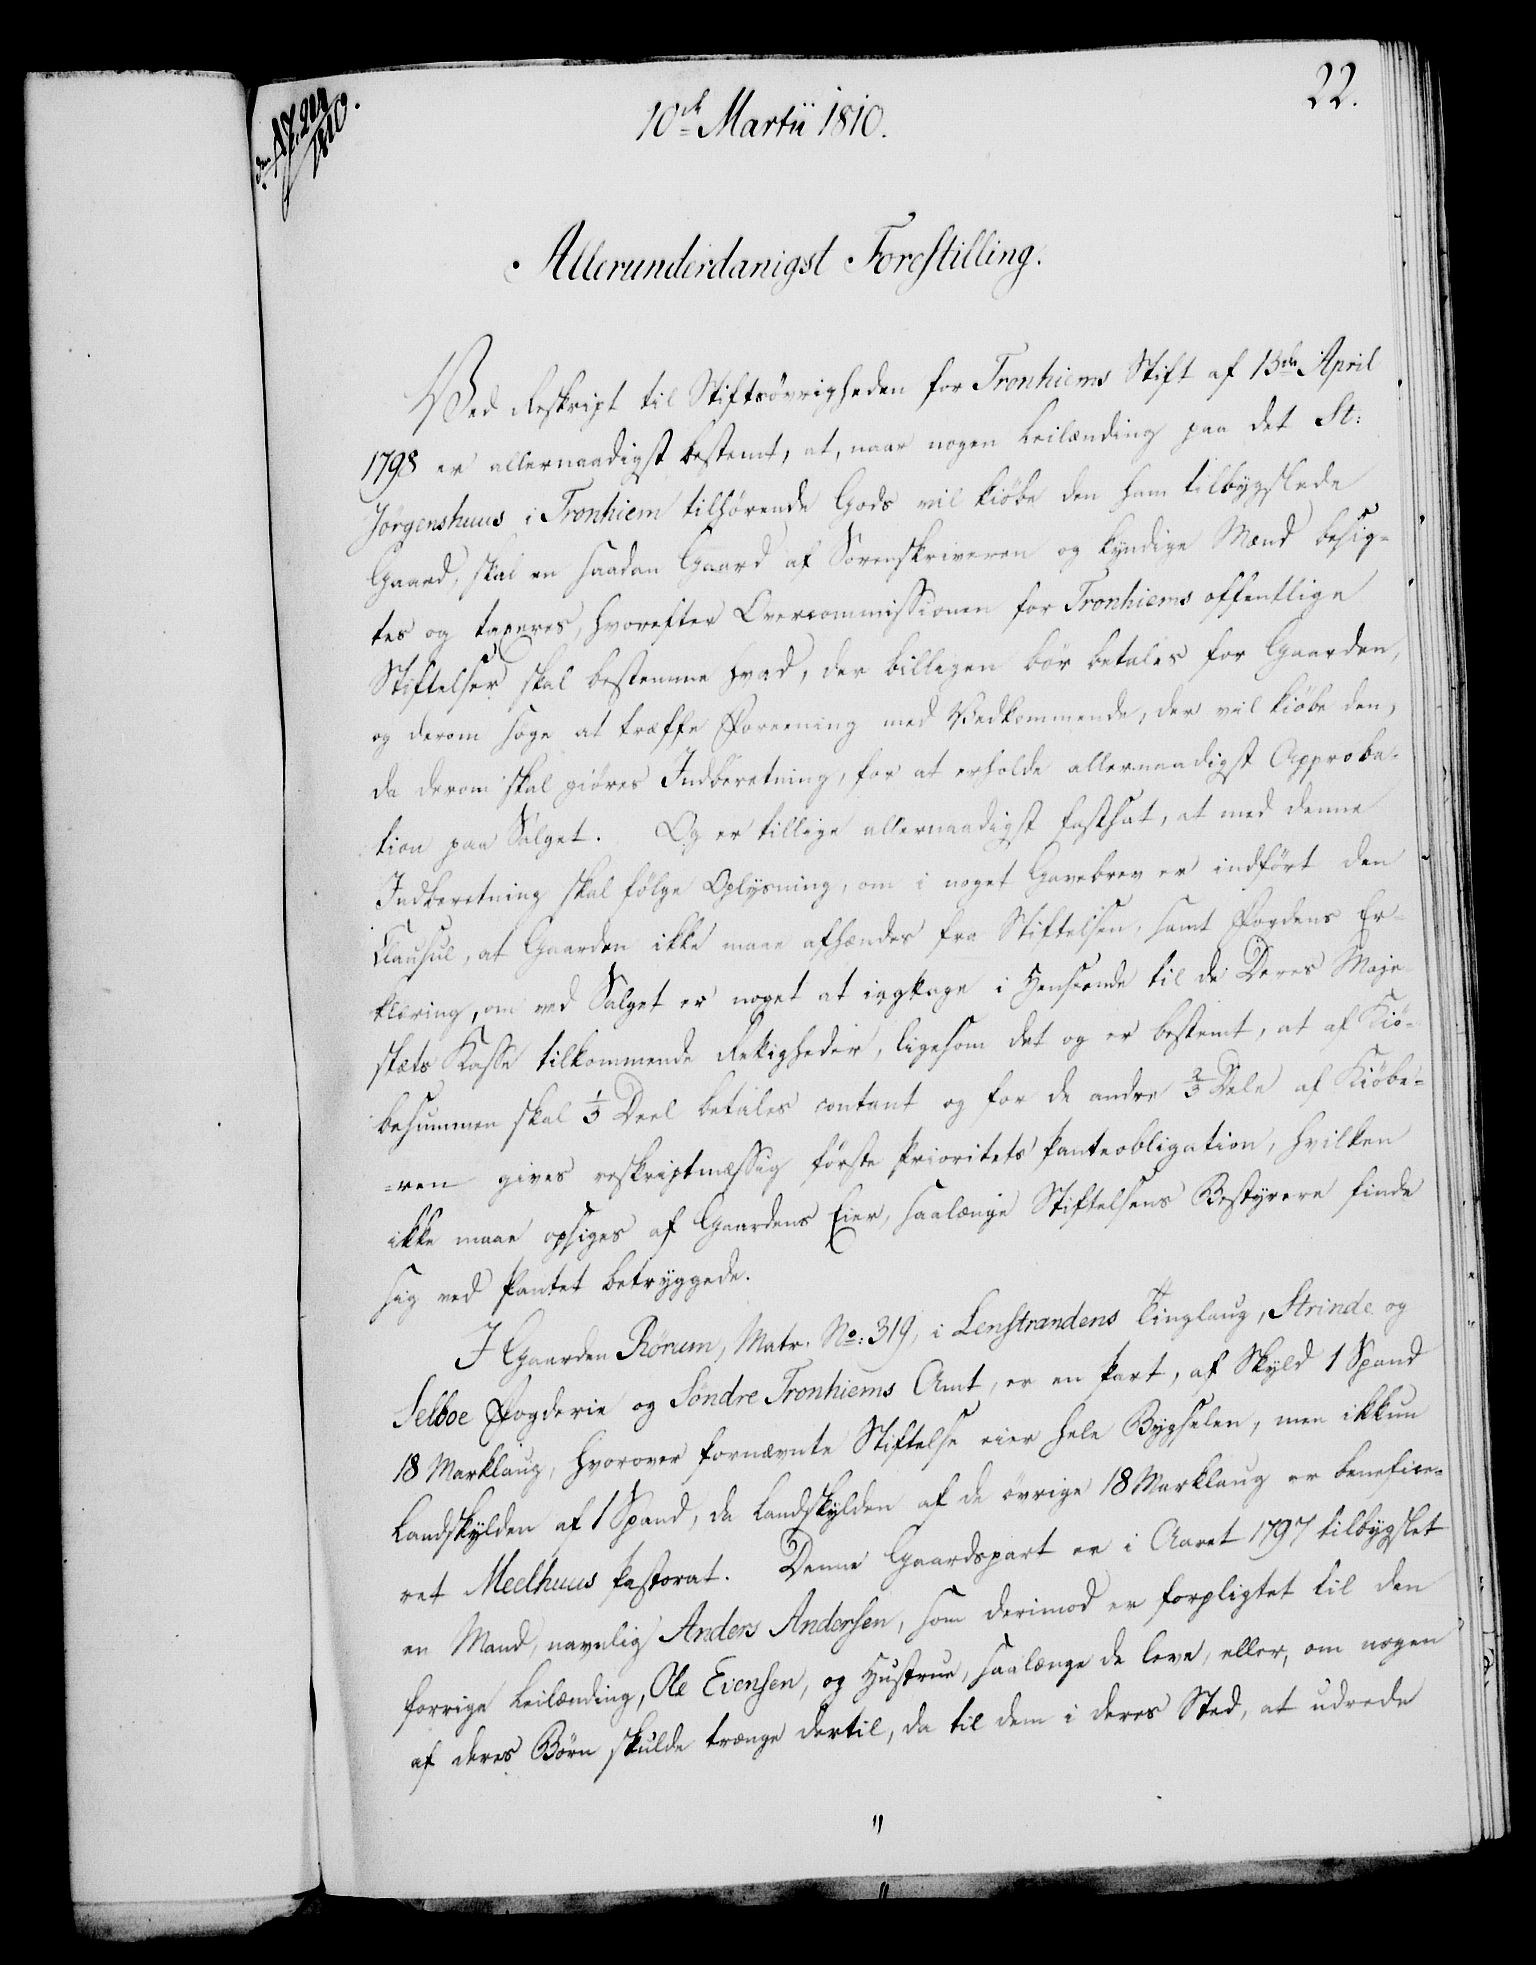 22.
10de Martii 1810.
Allerunderdanigst Forestilling.
Ved Reskript til Stiftsövrigheden for Tronhiems Stift af 13de April
1798 er allernaadigst bestemt, at, naar nogen Leilænding paa det St:
Jörgenshuus i Tronhiem tilhørende Gods vil kiöbe den ham tilbygslede
Gaard, skal en saadan Gaard af Sorenskriveren og kyndige Mænd besig-
tes og taxeres, hvorefter Overcommissionen for Tronhiems offentlige
Stiftelser skal bestemme hvad, der billigen bör betales for Gaarden,
og derom söge at træffe Foreening med Vedkommende, der vil kiöbe den,
da derom skal giöres Indberetning, for at erholde allernaadigst Approba-
tion paa Salget. Og er tillige allernaadigst fastsat, at med denne
Indberetning skal fölge Oplysning, om i noget Gavebrev er indfört den
Clausul, at Gaarden ikke maae afhændes fra Stiftelsen, samt Fogdens Er-
klæring, om ved Salget er noget at iagttage i Henseende til de Deres Maje-
stæts Kasse tilkommende Rettigheder, ligesom det og er bestemt, at af Kiö-
besummen skal 1/3 Deel betales contant og for de andre 2/3 Dele af Kiöbe-
=ren gives reskriptmæssig förste Prioritets Panteobligation, hvilken
ikke maae opsiges af Gaardens Eier, saalænge Stiftelsens Bestyrere finde
sig ved Pantet betryggede.
I Gaarden Rönum, Matr. No: 319, i Lenstrandens Tinglaug, Strinde og
Selboe Fogderie og Söndre Tronhiems Amt, er en Part, af Skyld 1 Spand
18 Marklaug, hvorover fornævnte Stiftelse eier hele Bygselen, men ikkun
Landskylden af 1 Spand, da Landskylden af de övrige 18 Marklaug er benefice-
ret Meelhuus Pastorat. Denne Gaardspart er i Aaret 1797 tilbygslet
en Mand, navnlig Anders Andersen, som derimod er forpligtet til den
forrige Leilænding, Ole Evensen, og Hustrue, saalænge de leve, eller, om nogen
af deres Börn skulde trænge dertil, da til dem i deres Sted, at udrede